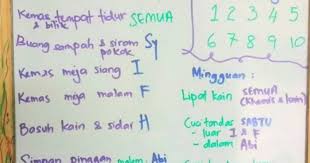 Kemas tempat tidur SEMUA
& bilik
Buang sampah & siram Sy
pokok
Kemas meja siang I
Kemas mja malam F
Basuh kain & sidar H
Simpan pinggan malam: Abi
1 2 3 4 5
6 7 8 9 10
Mingguan :
Lipat kain SEMUA
(Khamis & Isnin)
Cuci tandas SABTU
- luar I & F
- dalam Abi